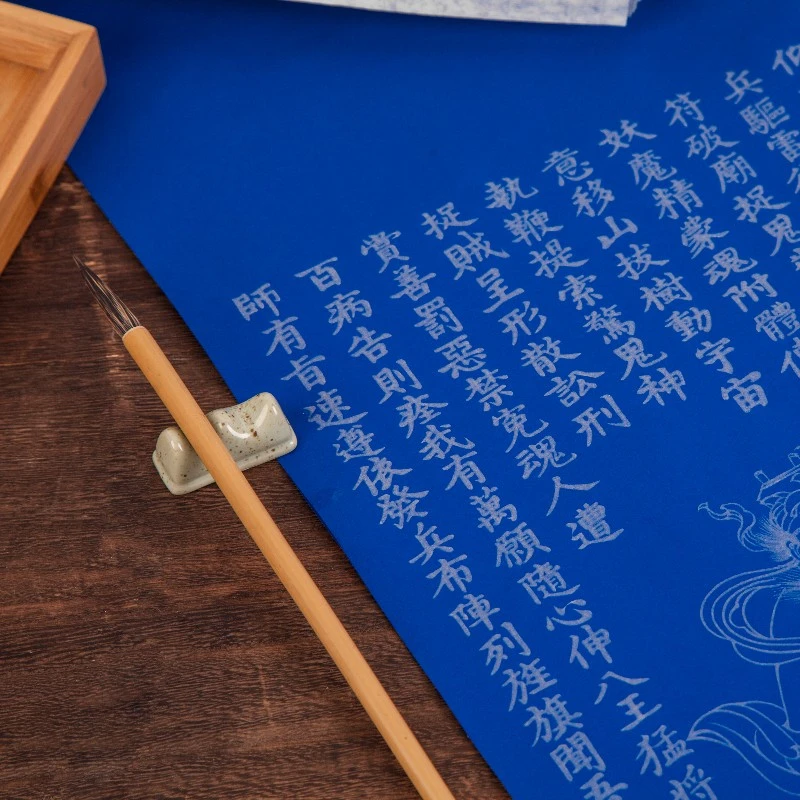 兵驅雷
符破廟捉鬼
妖魔精蒙魂附體
意移山拔樹動宇宙
執鞭提索驚鬼神
捉賊呈形散訟刑
賞善罰惡禁冤魂人遭
百病告則痊我有萬願隨心伸八王猛將
師有旨速遵依發兵布陣列旌旗聞吾